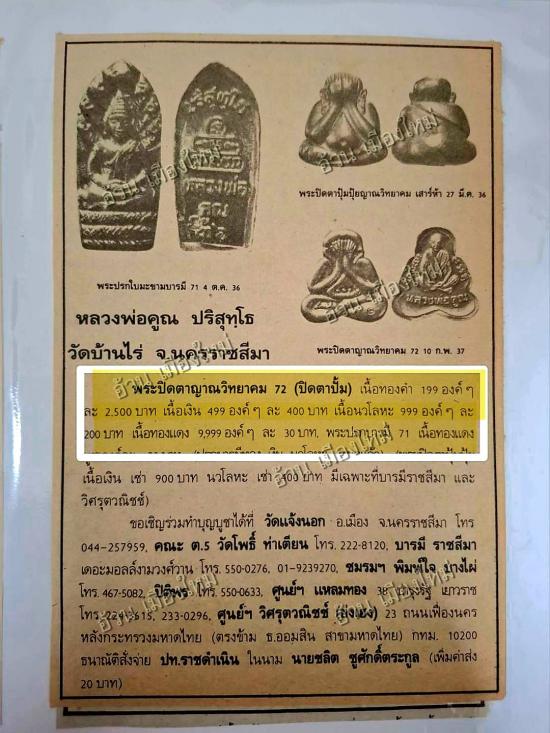 พระปรกใบมะขามบารมี 71 4 ต.ค. 36
พระปิดตาปุ้มปุ้ยญาณวิทยาคม เสาร์ห้า 27 มี.ค. 36
หลวงพ่อคูณ
พระปิดตาญาณวิทยาคม 72 10 ก.พ. 37
หลวงพ่อคูณ ปริสุทฺโธ
วัดบ้านไร่ จ.นครราชสีมา
พระปิดตาญาณวิทยาคม 72 (ปิดตาปั้ม) เนื้อทองคำ 199 องค์ ๆ
ละ 2,500 บาท เนื้อเงิน 499 องค์ ๆ ละ 400 บาท เนื้อนวโลหะ 999 องค์ ๆ ละ
200 บาท เนื้อทองแดง 9,999 องค์ ๆ ละ 30 บาท, พระปรกบารมี 71 เนื้อทองแดง
เนื้อเงิน เช่า 900 บาท นวโลหะ เช่า 400 บาท มีเฉพาะที่บารมีราชสีมา และ
วิศรุตวณิชช์)
ขอเชิญร่วมทำบุญบูชาได้ที่ วัดแจ้งนอก อ.เมือง จ.นครราชสีมา โทร
044-257959, คณะ ต.5 วัดโพธิ์ ท่าเตียน โทร. 222-8120, บารมี ราชสีมา
เดอะมอลล์งามวงศ์วาน โทร. 550-0276, 01-9239270, ชมรมฯ พิมพ์ใจ บางไผ่
โทร. 467-5082, ปิติพร โทร. 550-0633, ศูนย์ฯ แหลมทอง เยาวราช
โทร. 233-0296, ศูนย์ฯ วิศรุตวณิชช์ (ฮั่งเฮง) 23 ถนนเฟื่องนคร
หลังกระทรวงมหาดไทย (ตรงข้าม ธ.ออมสิน สาขามหาดไทย) กทม. 10200
ธนาณัติสั่งจ่าย ปท.ราชดำเนิน ในนาม นายชลิต ชูศักดิ์ตระกูล (เพิ่มค่าส่ง
20 บาท)
อ้วน เมืองใหม่
อ้วน เมืองใหม่
อ้วน เมืองใหม่
อ้วน เมืองใหม่
อ้วน เมืองใหม่
อ้วน เมืองใหม่
อ้วน เมืองใหม่